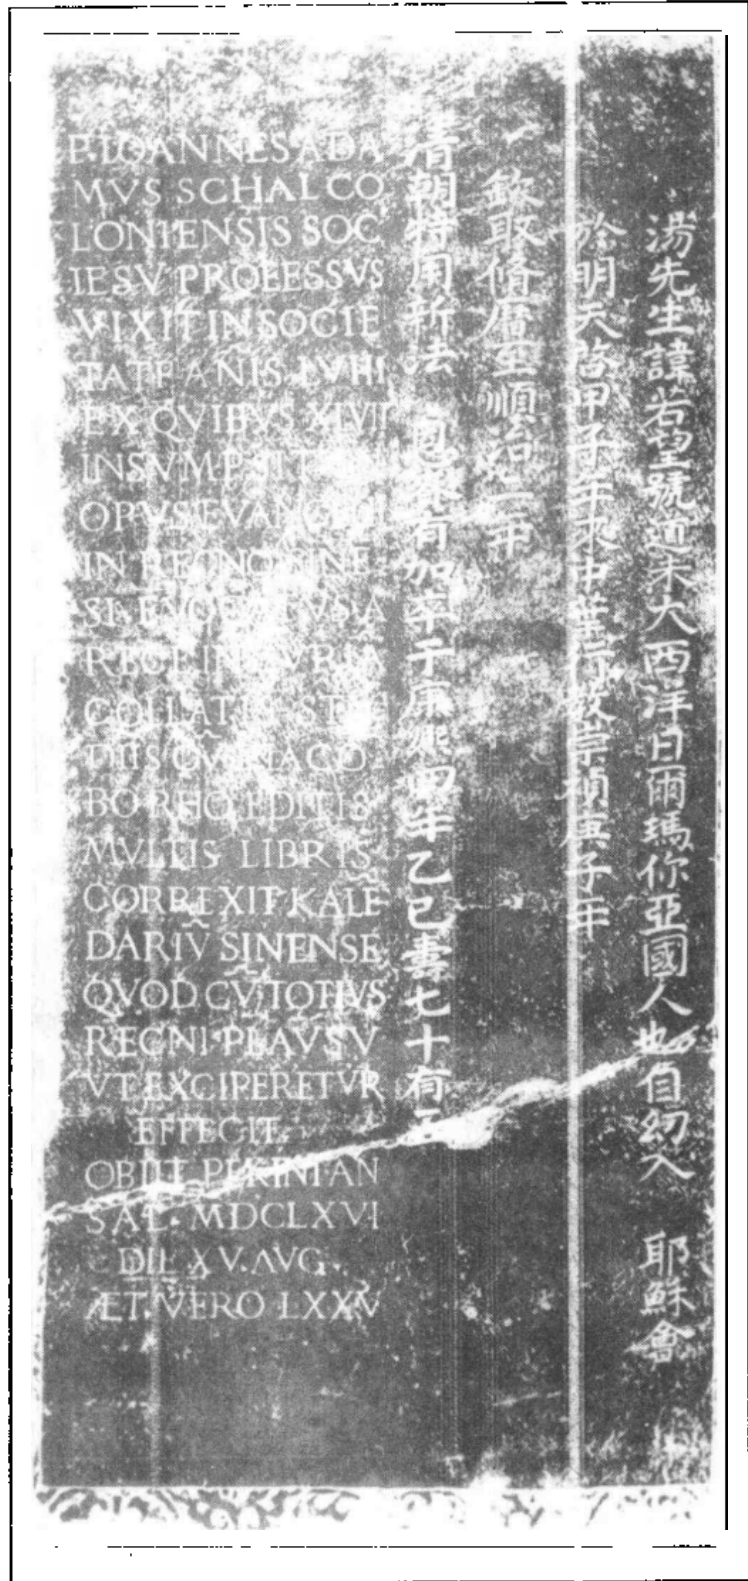 湯先生諱若望號道未大西洋日爾瑪你亞國人也自幼入 耶穌會
於明天啓甲子年來中華行教崇禎庚子年
欽取修曆至順治二年
清朝特用新法 恩 有加卒于康熙四年乙巳壽七十有
P. IOANNES ADA
MVS SCHAL CO
LONIENSIS SOC
IESV PROFESSVS
VIXIT IN SOCIE
TATE ANIS LVIII
EX QVIBVS XLVII
INSVMPSIT
OPVS EVANG
IN REGNO SINE
SI. EVOCATVS A
REGE IN CVRIA
COLLATIS STV
DIIS CV IACO
BO RHO EDITIS
MVLTIS LIBRIS
CORREXIT KALE
DARIV SINENSE
QVOD CV TOTIVS
REGNI PLAVSV
VT EXCIPERETVR
EFFECIT.
OBIIT PEKINI AN
SAL. MDCLXVI
DIE XV. AVG.
ÆT. VERO LXXV